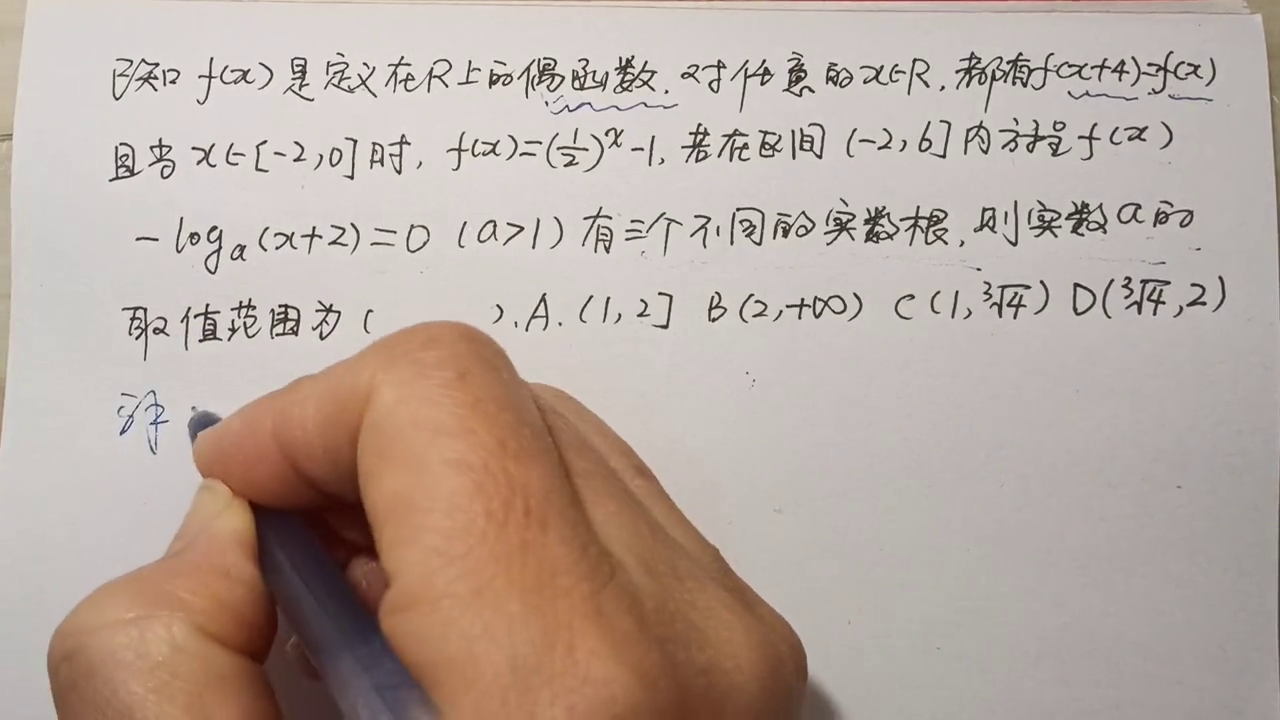 已知 f(x) 是定义在R上的偶函数. 对任意的x∈R, 都有f(x+4)=f(x)
且当 x∈[-2,0]时, f(x)=(1/2)^x -1, 若在区间 (-2,6]内方程f(x)
-logₐ(x+2)=0 (a>1) 有三个不同的实数根, 则实数a的
取值范围为( ). A. (1,2] B (2,+∞) C (1,³√4) D(³√4,2)
详